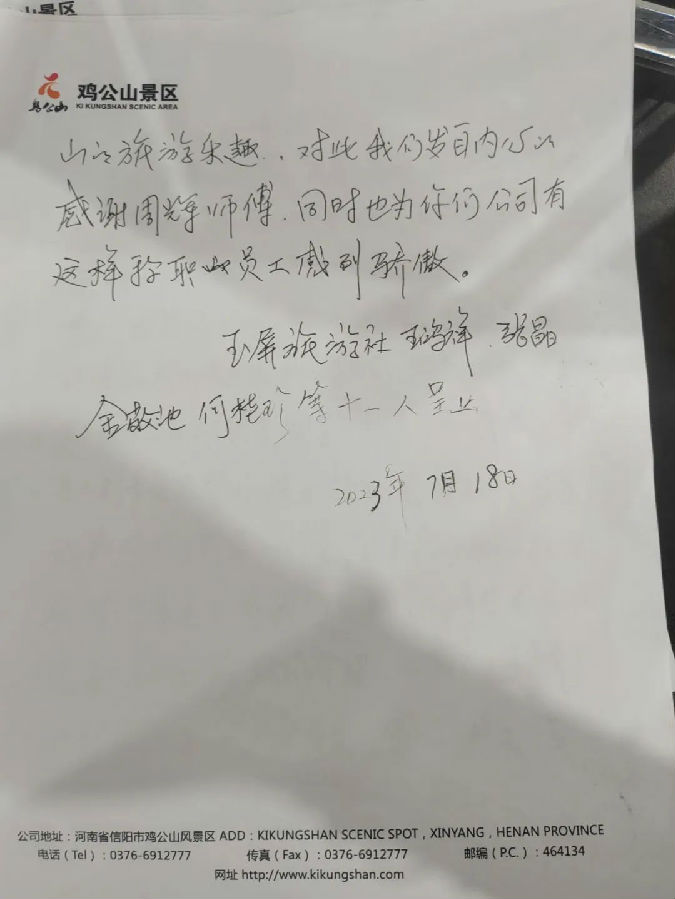 山景区
鸡公山
鸡公山景区
KI KUNGSHAN SCENIC AREA
山之旅游乐趣.对此我们发自内心的
感谢周辉师傅.同时也为你们公司有
这样称职的员工感到骄傲。
玉屏旅游社 王鸿祥.张晶
金敬池 何桂珍等十一人呈上
2023年7月18日
公司地址：河南省信阳市鸡公山风景区 ADD：KIKUNGSHAN SCENIC SPOT，XINYANG，HENAN PROVINCE
电话（Tel）：0376-6912777 传真（Fax）：0376-6912777 邮编（P.C.）：464134
网址 http://www.kikungshan.com